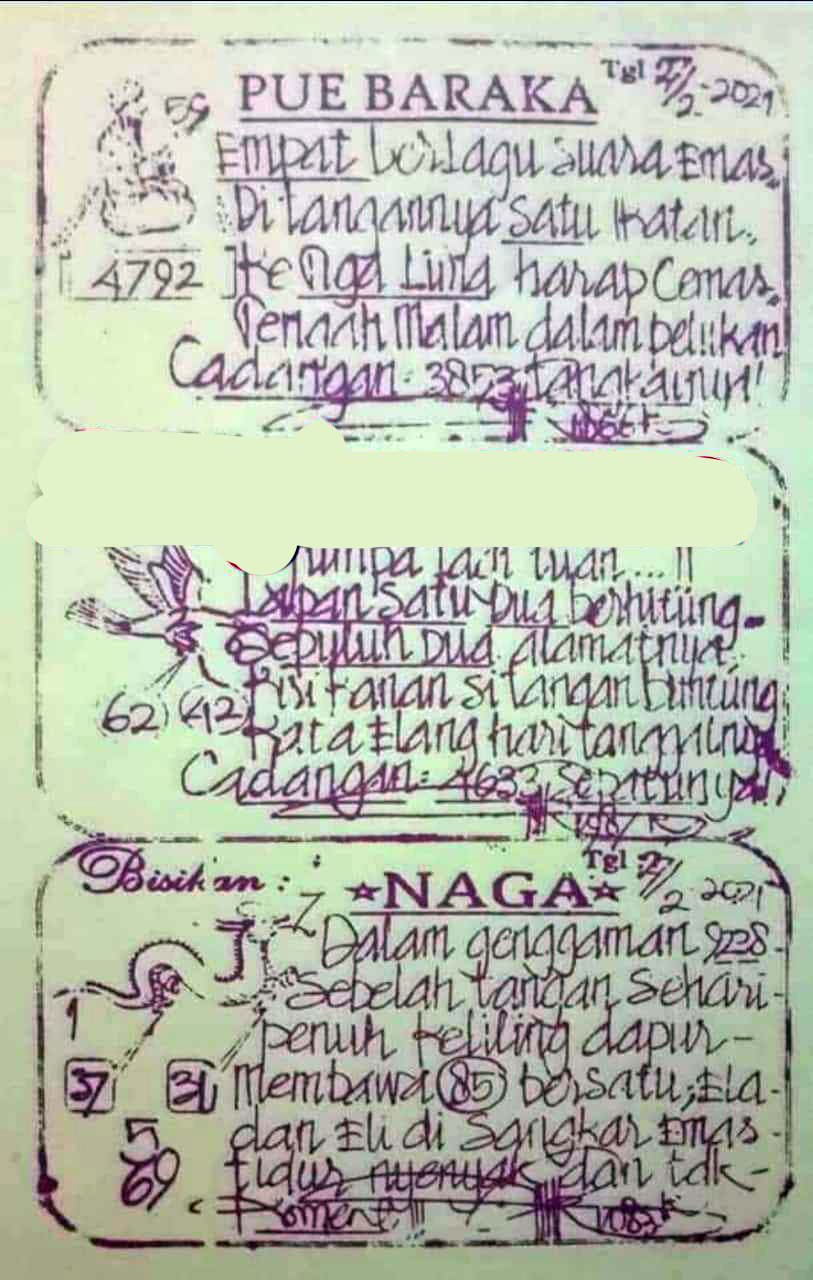 PUE BARAKA
Tgl 2/2-2021
59
Empat berlagu suara Emas.
Di tangannya satu Ikatan.
4792
Ke Naga Lung harap Cemas.
Tengah Malam dalam
Cadangan: 3853, tangkainya!
lain tuan...!!
Lapan Satu Dua berhitung.
Sepuluh Dua alamatnya.
62 42
si tangan buntung
Kata Elang hari tanggalnya
Cadangan: 4633, Sepatunya!
Bisikan:
NAGA
Tgl 2/2 2021
Dalam genggaman
Sebelah tangan Sehari-
1
penuh keliling dapur-
37 31
Membawa 85 bersatu; Ela-
5
dan Eli di Sangkar Emas-
69
tidur nyenyak dan tdk-
Koment!!